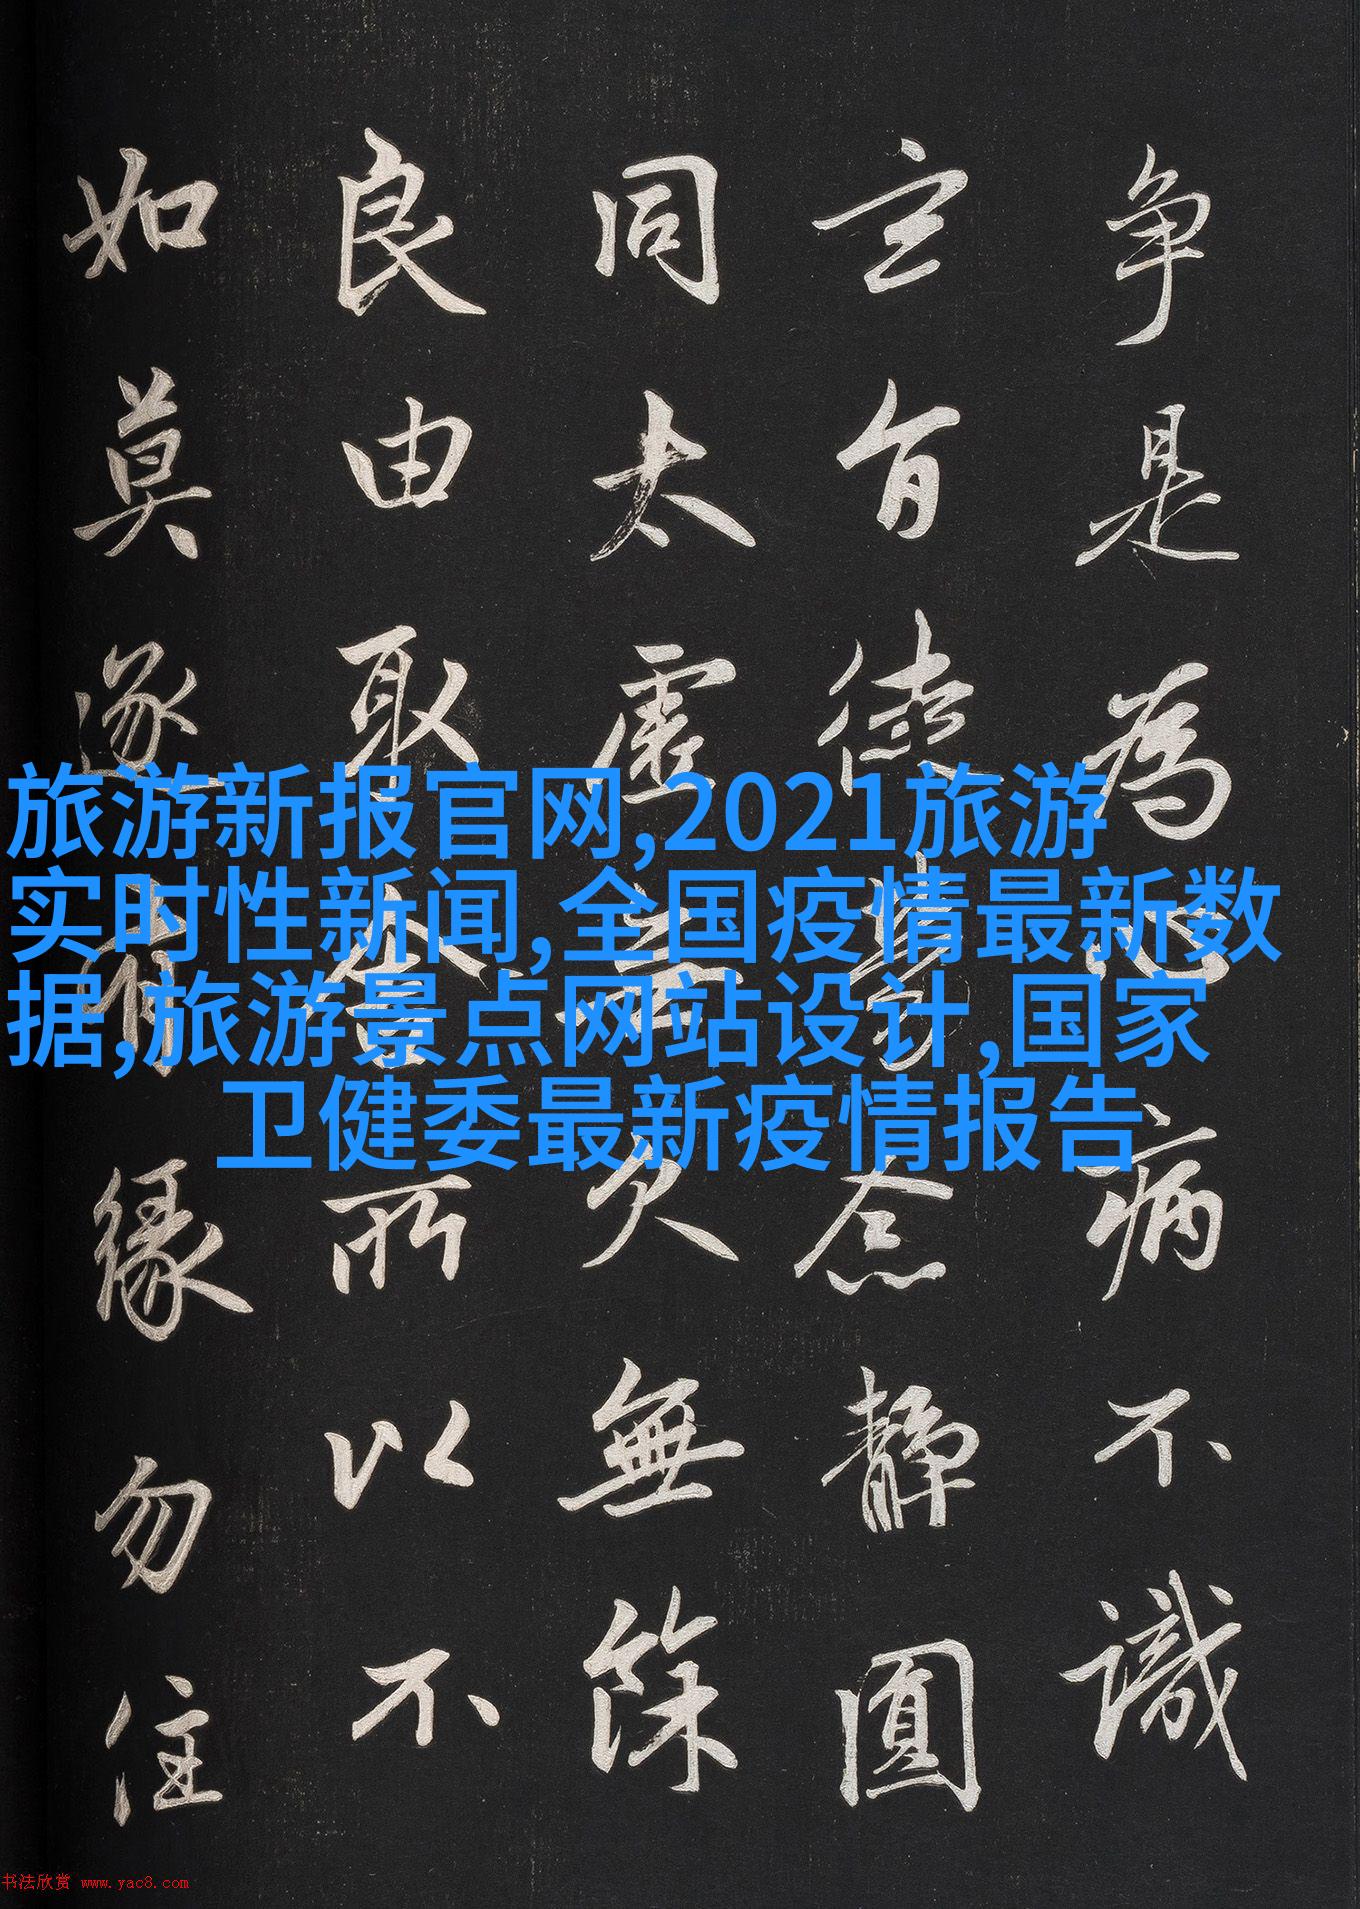 争是為心病不識
玄旨徒勞念静圓
同太虚無欠無餘
良由取舍所以不
如莫逐有緣勿住
旅游新报官网,2021旅游
实时性新闻,全国疫情最新数
据,旅游景点网站设计,国家
卫健委最新疫情报告
书法欣赏 www.yac8.com